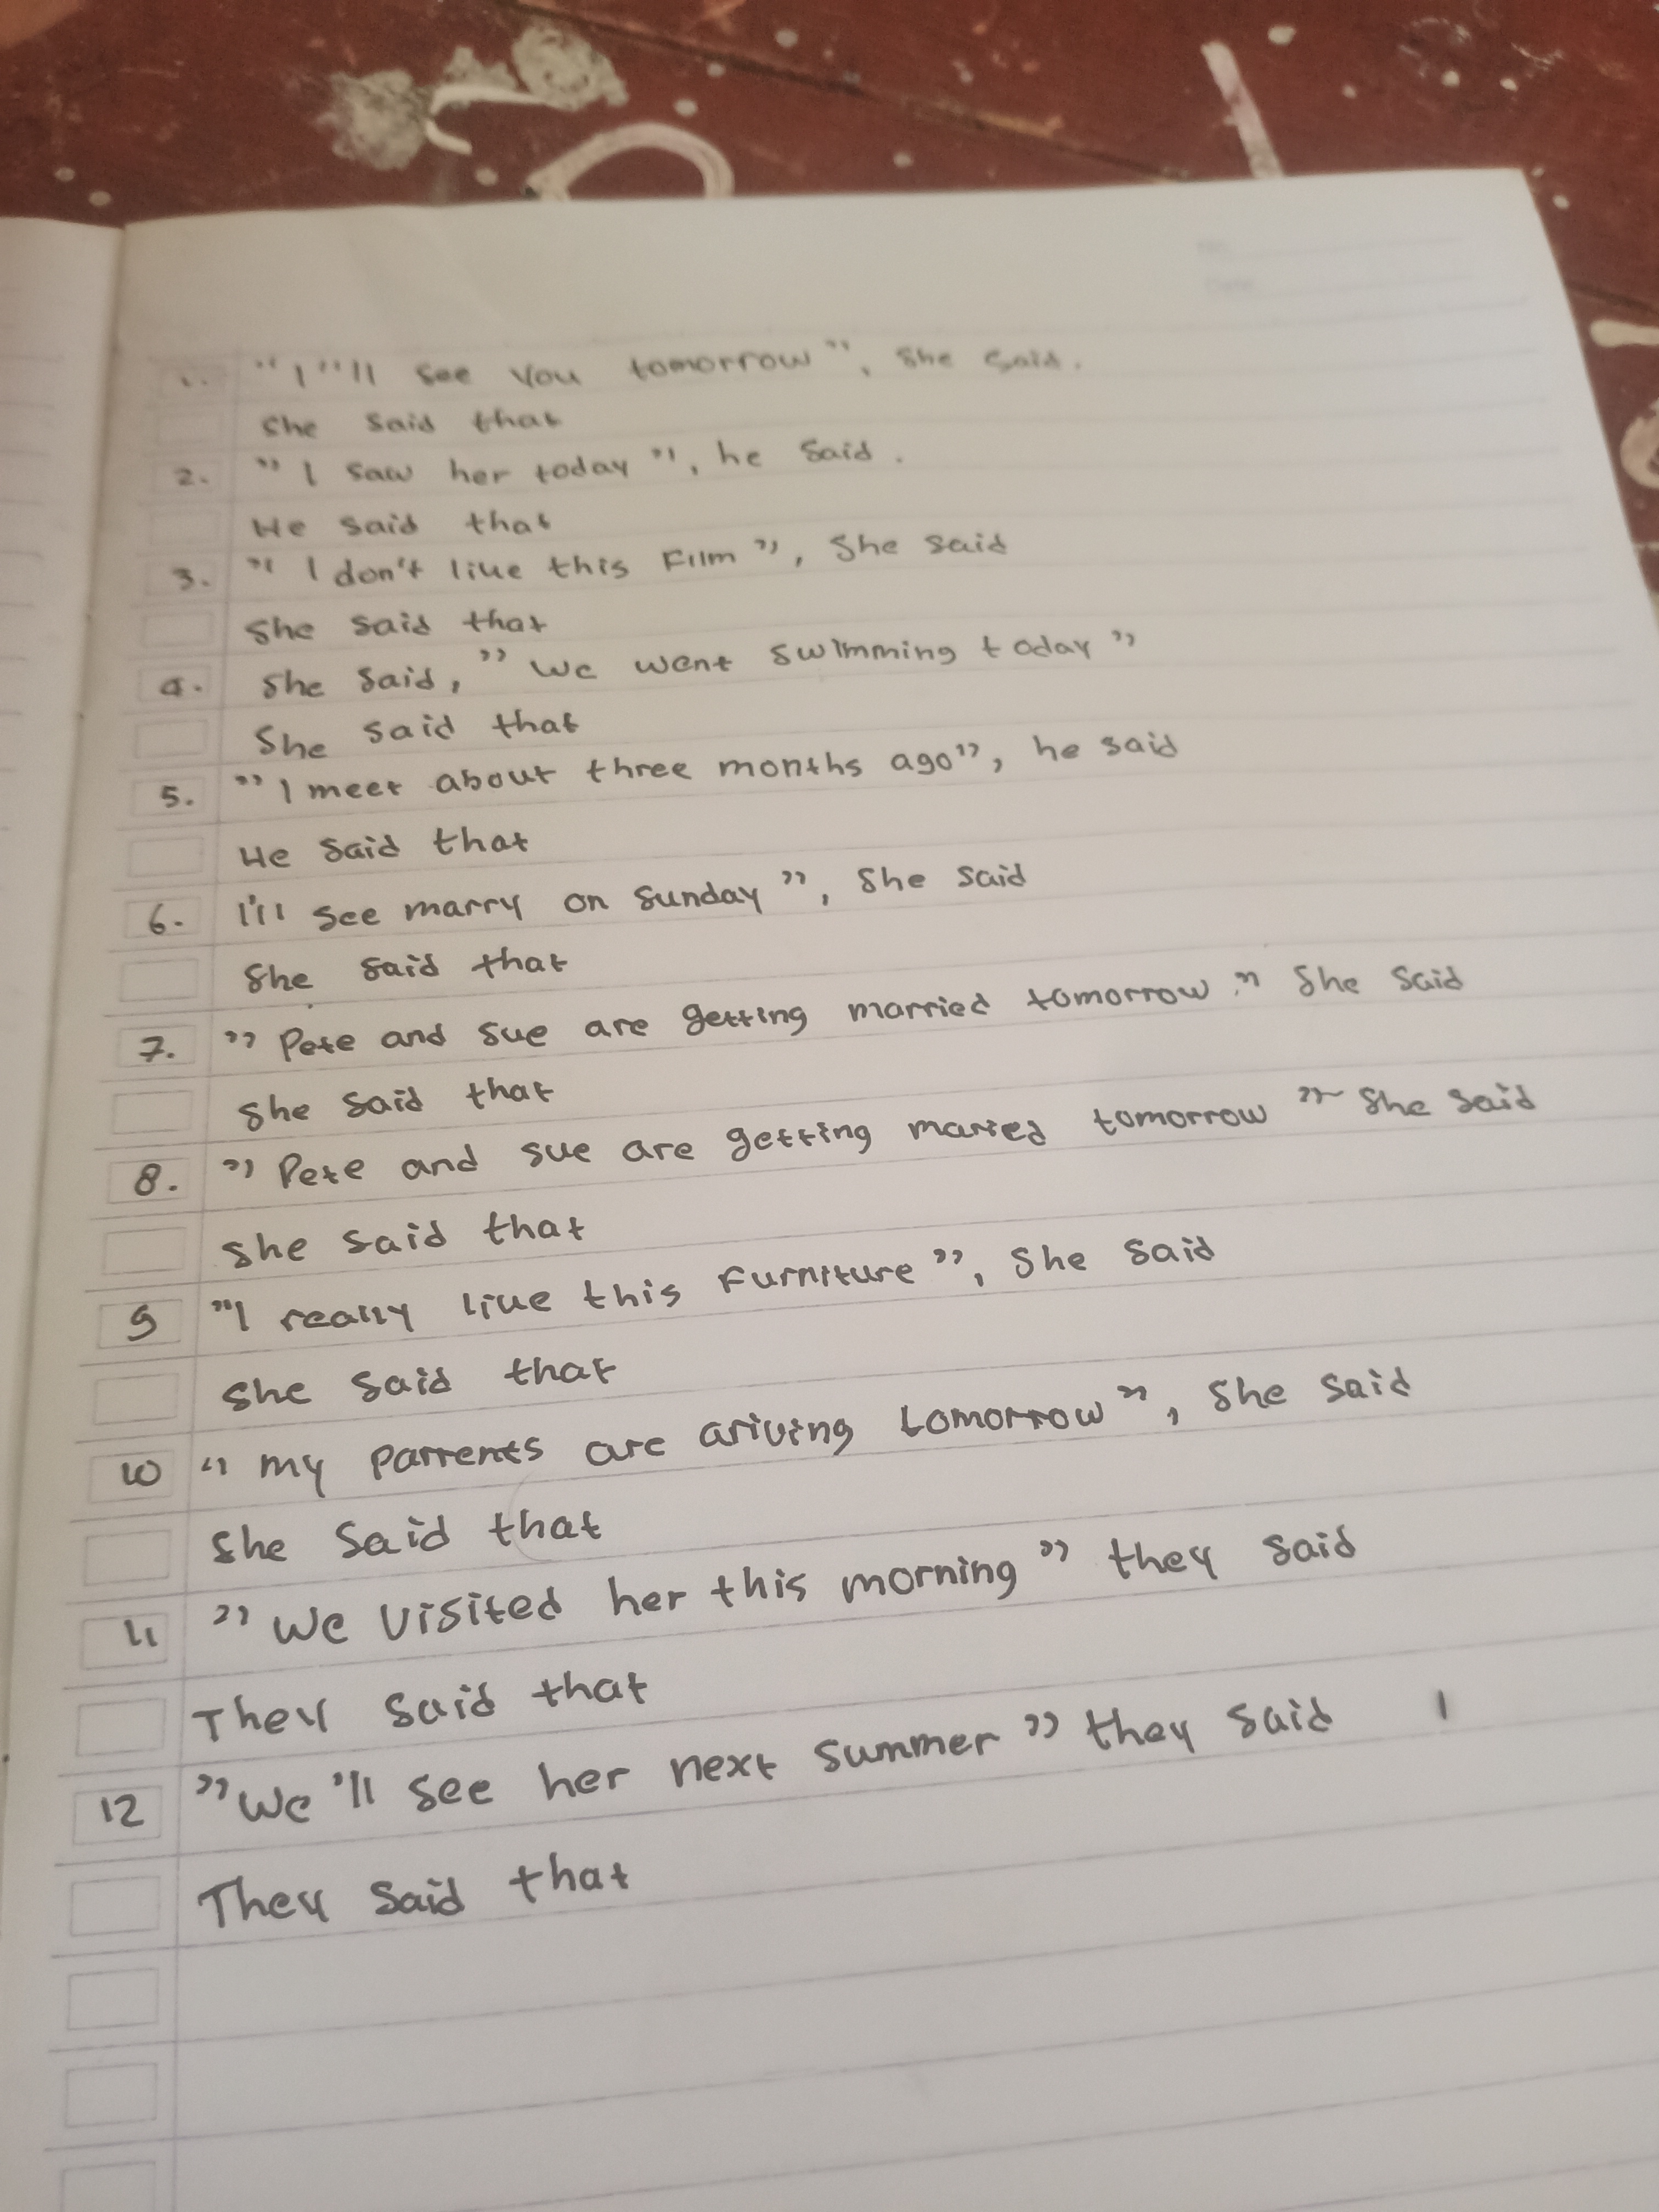 1. "I"ll see you tomorrow", she said.
She said that
2. "I saw her today", he said.
He said that
3. "I don't like this Film", She said
She said that
4. She said, "We went swimming today"
She said that
5. "I meet about three months ago", he said
He said that
6. I'll see marry on sunday", She said
She said that
7. "Pete and Sue are getting married tomorrow." She said
She said that
8. "Pete and sue are getting maried tomorrow" She said
She said that
9 "I really like this Furniture", She said
She said that
10 "my parrents are ariving tomorrow", She said
She said that
11 "We visited her this morning" they said
They said that
12 "We'll see her next summer" they said
They said that